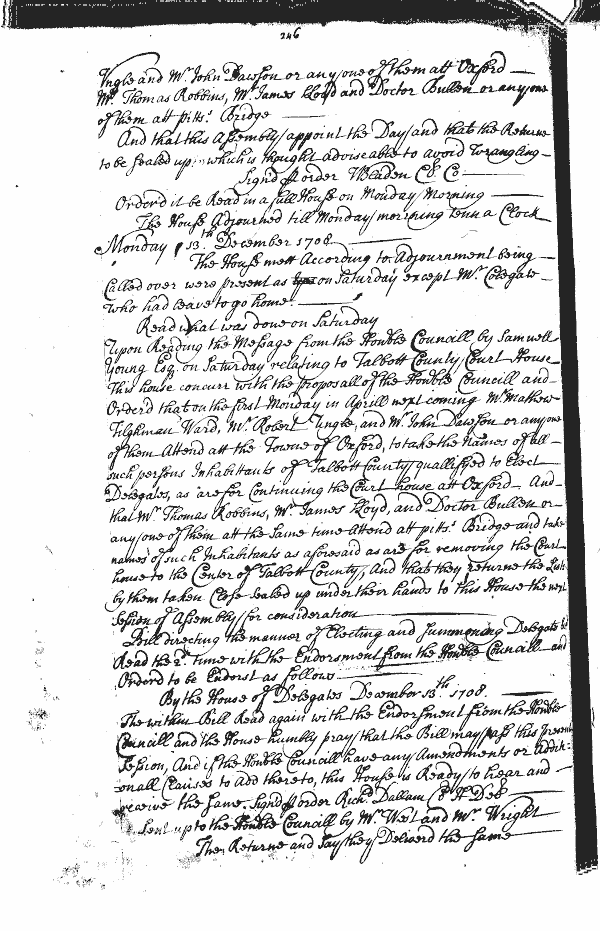 246
Ungle and Mr. John Dawson or any one of them att Oxford
Mr. Thomas Robbins, Mr. James Lloyd and Doctor Bullen or any one
of them att pitts: Bridge
And that this Assembly appoint the Day and that the Returne
to be sealed up: which is thought adviseable to avoid Wrangling
Signd p order WBladen Cl Co
Orderd it be Read in a full House on Monday Morning
The House Adjourned till Monday morning tenn a Clock
Monday 13th. Xbr December 1708
The House mett According to Adjournment being
Called over were present as on Saturday except Mr. Colegate
who had leave to go home.
Read what was done on Saturday
Upon Reading the Message from the Honble Councill by Samuell
Young Esq. on Saturday relating to Talbott County Court House
This house concurr with the proposall of the Honble Councill and
Orderd that on the first Monday in Aprill next coming Mr. Mathew
Tilghman Ward, Mr. Robert Ungle, and Mr. John Dawson or any one
of them Attend att the Towne of Oxford, to take the Names of all
such persons Inhabitants of Talbott County quallified to Elect
Delegates, as are for Continuing the Court house at Oxford And
that Mr. Thomas Robbins, Mr. James Lloyd, and Doctor Bullen or
any one of them att the Same time Attend at pitts: Bridge and take
names of such Inhabitants as aforesaid as are for removing the Court
house to the Center of Talbott County, And that they returne the Lists
by them taken Close Sealed up under their hands to this House the next
Session of Assembly for consideration
Bill directing the manner of Electing and Summoning Delegates &c
Read the 2d. time with the Endorsment from the Honble Councill and
Orderd to be Endorst as follows
By the House of Delegates December 13th. 1708.
The within Bill Read again with the Endorsment from the Honble
Councill and the House humbly pray that the Bill may pass this present
Session, And if the Honble Councill have any Amendments or Additi-
onall Clauses to Add thereto, this House is Ready to hear and
receive the same. Signd p order Richd. Dallam Cl H Del
Sent up to the Honble Councill by Mr. West and Mr. Wright
They Returne and say they Deliverd the same